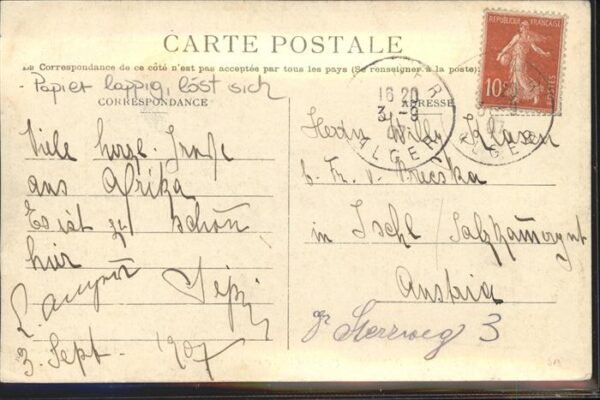 CARTE POSTALE
La Correspondance de ce côté n'est pas acceptée par tous les pays (Se renseigner à la poste)
- Papier lappig, löst sich
CORRESPONDANCE
ADRESSE
REPUBLIQUE FRANÇAISE
10
POSTES
16 20
3-9
ALGER
ALGER
07
Viele herzl. Grüße
aus Afrika
Es ist zu schön
hier
3. Sept. 1907
Herrn Willy
in Ischl Salzkammergut
Austria
3